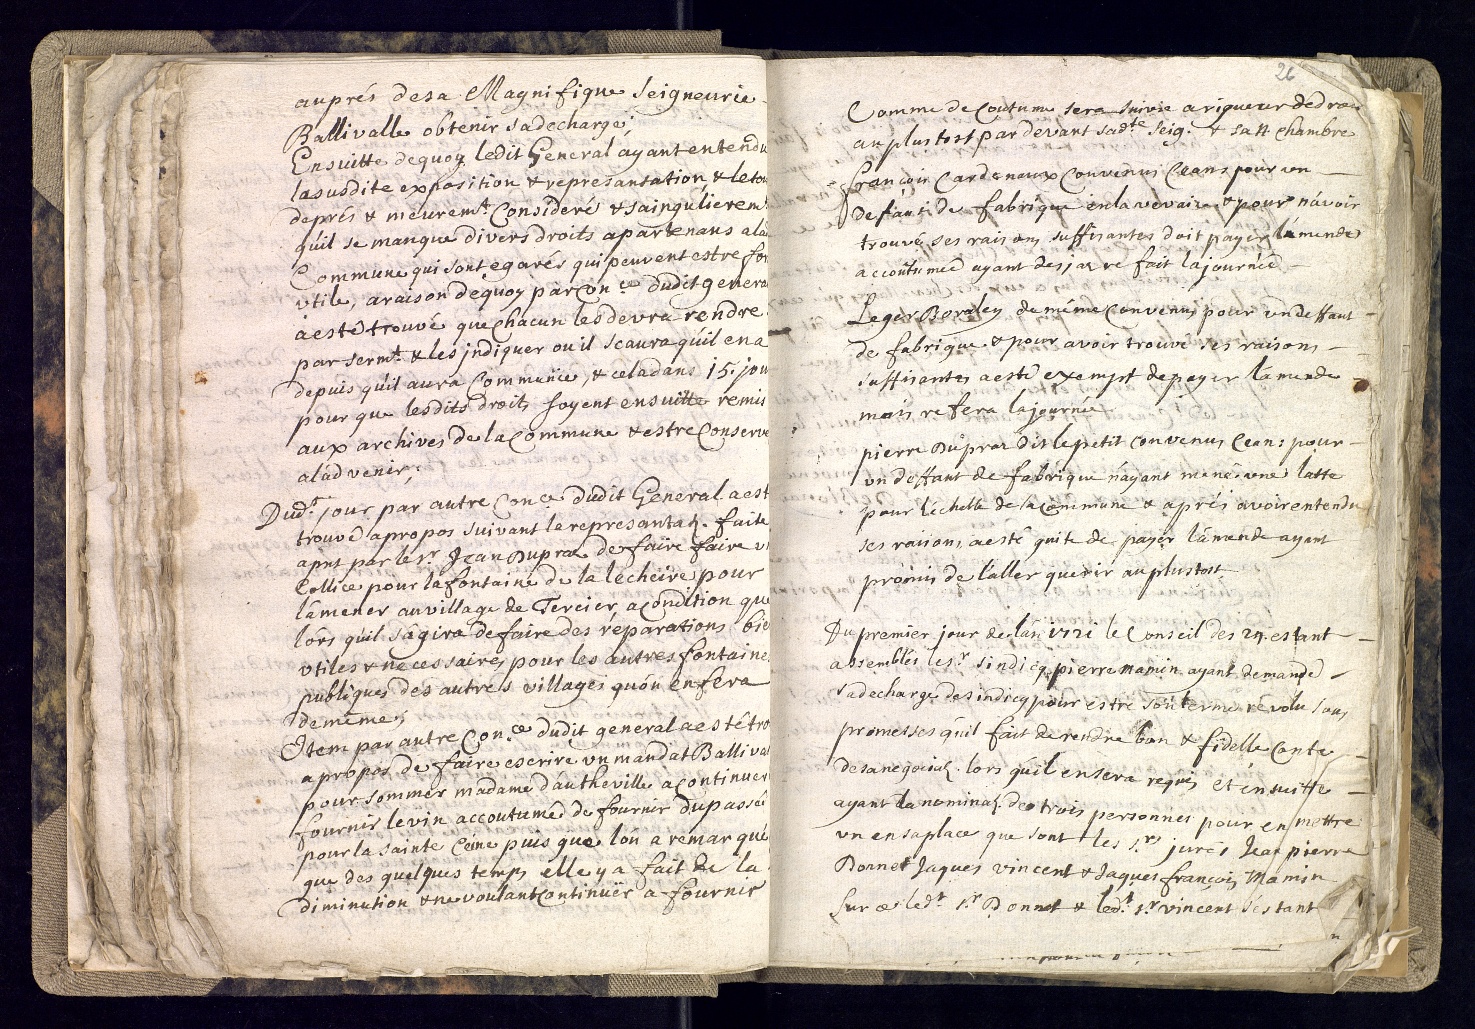 auprés desa Magnifique Seigneurie
Ballivalle obtenir sadecharge;
Ensuitte dequoy ledit General ayant entendu
lasusdite exposition & represantation, & le tou
deprés & meurem.t Consideré & saingulierem.
quil se manque divers droits apartenans ala
Commune qui sont egarés qui peuvent estre for
vtile, araison dequoy par Con.ce dudit genera
aesté trouvé que Chacun les devra rendre
par serm.t & les jndiquer ou il scaura quil en a
depuis quil aura Communïe, & cela dans 15. jou
pour que lesdits droits soyent ensuitte remis
aux archives de la Commune & estre Conserve
aladvenir;
Dud.t jour par autre Con.ce dudit General aest
trouvé apropos suivant la represantao~. faite
apnt par le sr. Jean Dupraz de faire faire v
Collice pour la fontaine de la lécheire pour
lámener au village de Tercier, a Condition que
lors quil ságira de faire des réparations bie
vtiles & necessaires pour les autres fontaine
publiques des autres villages quón en fera
demême;
Jtem par autre Con.ce dudit general aesté tro
apropos de faire escrire vn mandat Ballival
pour sommer madame dáutheville a Continuer
fournir le vin accoutumé de fournir du passé
pour la sainte Céine puis que lón a remarqué
que des quelques temps elle y a fait de la
diminution & ne voulant Continuër a fournir
26
Comme de Coutume sera suivie a rigueur de droi
au plustost par devant sad.te seig. & sa tt Chambre
françois Cardenaux Convenus Ceans pour vn
deffaut de fabrique & pour návoir
trouvé ses raisons suffisantes doit payer lámende
accoutumée ayant desja re fait lajournée
Leger Boraley de même Convenus pour vn deffaut
de fabrique & pour avoir trouvé ses raisons
suffisantes aesté exempt de payer lámende
mais refera lajournée
pierre Dupraz dit le petit Convenus Ceans pour
vn deffaut de fabrique náyant mené vne latte
pour léchelle de la Commune & aprés avoir entendu
ses raisons, aesté quite de payer lámende ayant
promis de láller querir au plustost
Du premier jour de lán 1721 le Conseil des 24. estant
assemblés le sr. sindicq pierre mamin ayant demandé
sadecharge de sindicq pour estre son terme révolu sous
promesses quil fait de rendre bon & fidelle Conte
de sa negoiao~. lors quil en sera requis et ensuitte
ayant la nominao~. de trois personnes pour en mettre
vn en saplace que sont les s.rs jurés Jean pierre
Donnet Jaques vincent & Jaques françois Mamin
sur ce led.t s.r Donnet & led.t s.r vincent séstant